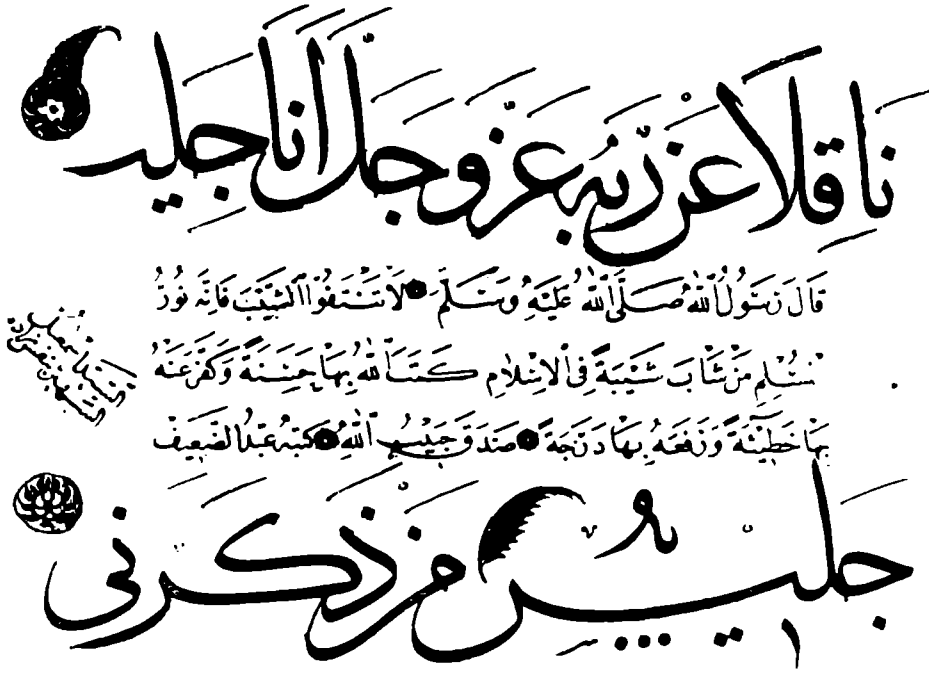 ناقلا عن ربه عز وجل انا
قَالَ رَسُولُ اللهِ صَلَّى اللهُ عَلَيْهِ وَسَلَّمَ لَا تَنْتِفُوا الشَّيْبَ فَاِنَّهُ نُورُ
مُسْلِمٍ مَنْ شَابَ شَيْبَةً فِى الْاِسْلَامِ كَتَبَ اللهُ بِهَا حَسَنَةً وَكَفَّرَ عَنْهُ
بِهَا خَطِيئَةً وَرَفَعَهُ بِهَا دَرَجَةً صَدَقَ حَبِيبُ اللهِ كَتَبَهُ عَبْدُ الضَّعِيفِ
جليس من ذكرني